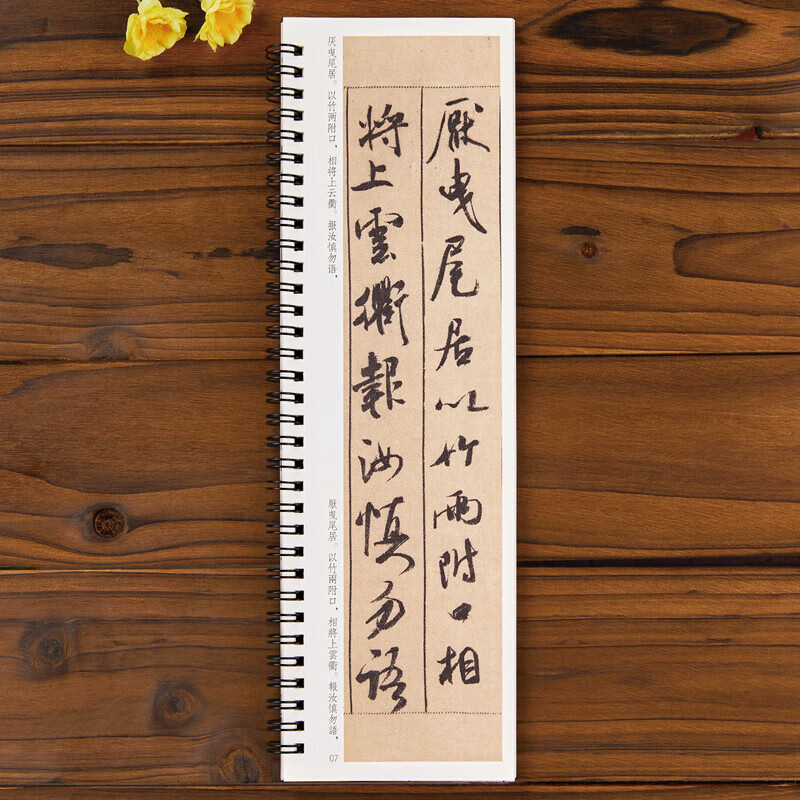 厭曳尾居以竹兩附口相
將上雲衢報汝慎勿語
厌曳尾居。以竹两附口，相将上云衢。报汝慎勿语，
厭曳尾居。以竹兩附口，相將上雲衢。報汝慎勿語，
07